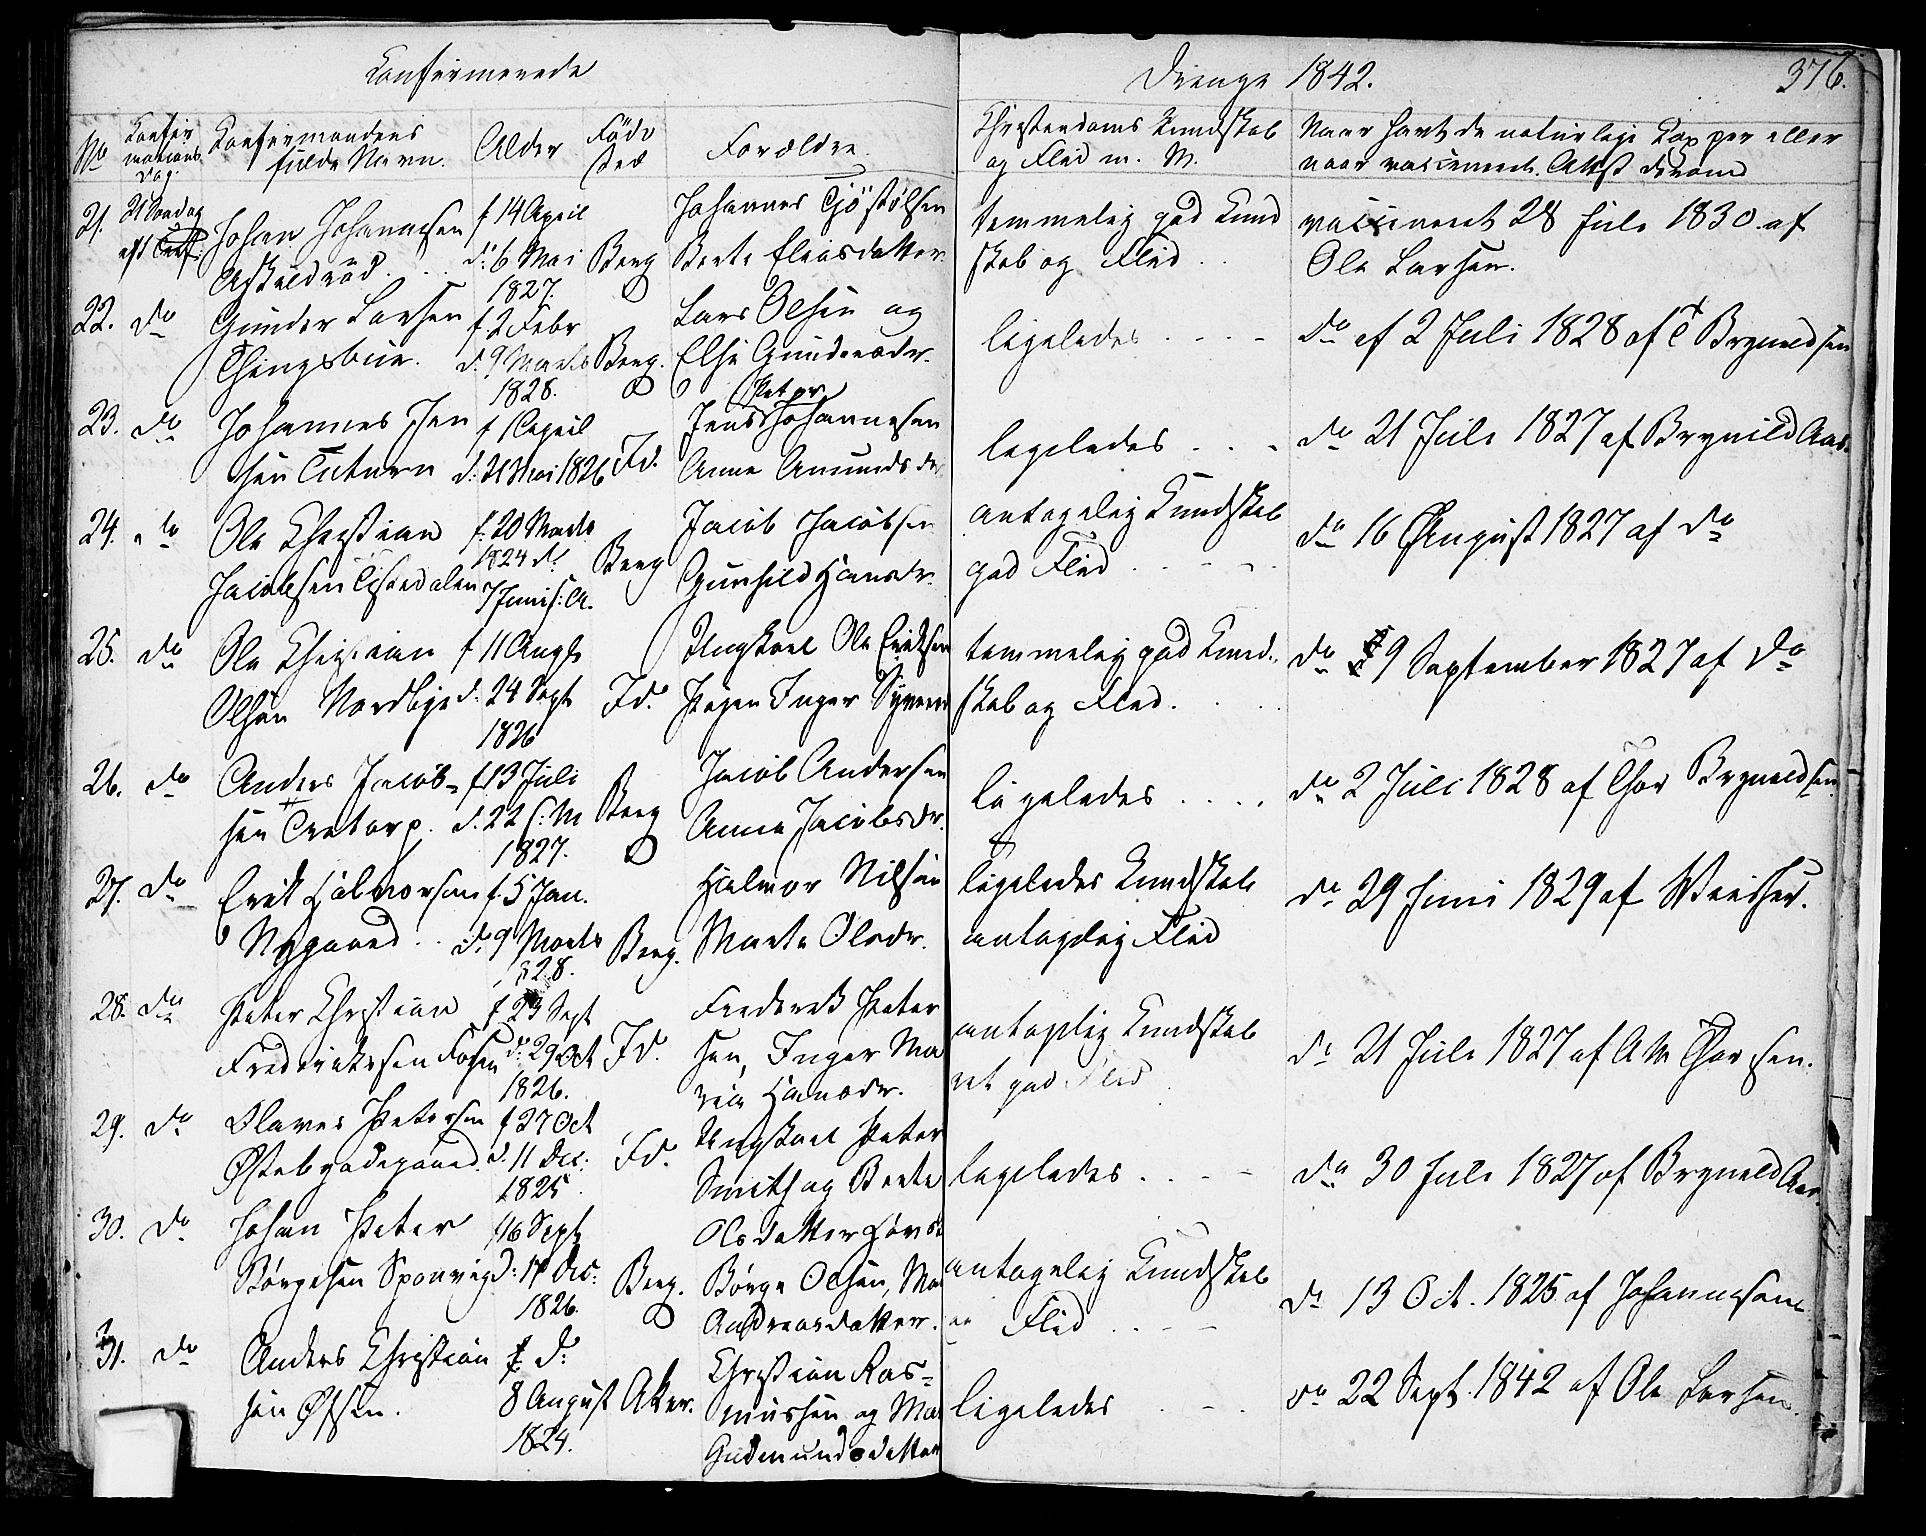 Konfirmerede
Drenge 1842.
376.
No
Konfirmations dag.
Konfirmandens fulde Navn.
Alder
Føde Sted
Forældre.
Christendoms Kundskab og Flid m. M.
Naar havt de naturlige Kopper eller naar vaccineret. Attest derom
21.
21 Søndag eft Trif:
Johan Johannesen
f 14 April
d: 6 Mai
1827.
Berg
Johannes Tjöstølsen
Berte Eliasdatter
temmelig god Kund
skab og Flid . .
vaccineret 28 Juli 1830 af
Ole Larsen.
22. do
Gunder Larsen
f. 2 Febr
d. 9 Marts
1828.
Berg.
Lars Olsen og
Else Gundersdr.
ligeledes . . . -
do af 2 Juli 1828 af T Bryneldsen
23. do
Johannes Jen
sen
f 1 April
d: 21 Mai 1826
Id.
Peter
Jens Johannesen
Anne Amundsdr
ligeledes . . -
do 21 Juli 1827 af Brynild Aas.
24. do
Ole Christian
Jacobsen Tistedalen
f. 20 Marts
1824 d:
7 Juni s: A.
Berg
Jacob Jacobsen
Gunhild Hansdr.
antagelig Kundskab
god Flid . - - -
do 16 August 1827 af do
25. do
Ole Christian
Olsen Nordbye
f 11 Augt
d: 24 Sept
1826
Id.
Ungkarl Ole Eriksen
Pigen Inger Syvers
temmelig god Kund.
skab og Flid. . .
do 9 September 1827 af do
26. do
Anders Jacob-
sen Tretorp.
f 13 Juli
d. 22 s: M
1827.
Berg
Jacob Andersen
Anne Jacobsdr.
ligeledes . . . .
do 2 Juli 1828 af Thor Bryneldsen.
27. do
Erik Halmorsen
Nygaard . .
f. 5 Jan.
d. 9 Marts
1828.
Berg.
Halmor Nilsen
Marte Olsdr.
ligeledes Kundskab
antagelig Flid
do 29 Juni 1829 af
28. do
Peter Christian
Frederiksen Fosen
f 23 Sept
d: 29 Oct
1826.
Id.
Frederik Peter
sen, Inger Ma
ria Hansdr.
antagelig Kundskab
ret god Flid
do 21 Juli 1827 af A M Thorsen.
29. do
Olaves Petersen
f 27 Oct
d. 11 Dec:
1825.
Id.
Ungkarl Peter
Smith og Berte
Olsdatter
ligeledes . . - -
do 30 Juli 1827 af Bryneld Aas
30. do
Johan Peter
Børgesen Sponvig
f 16 Sept
d: 17 Dec:
1826.
Berg.
Børge Olsen, Mar
Andreasdatter.
antagelig Kundskab
Flid . . - -
do 13 Oct. 1825 af Johannesen
31. do
Anders Christian
sen
f. d:
8 August
1824.
Aker.
Christian Ras-
mussen og Mar
Gudmundsdatter
ligeledes . - .
do 22 Sept. 1842 af Ole Larsen.